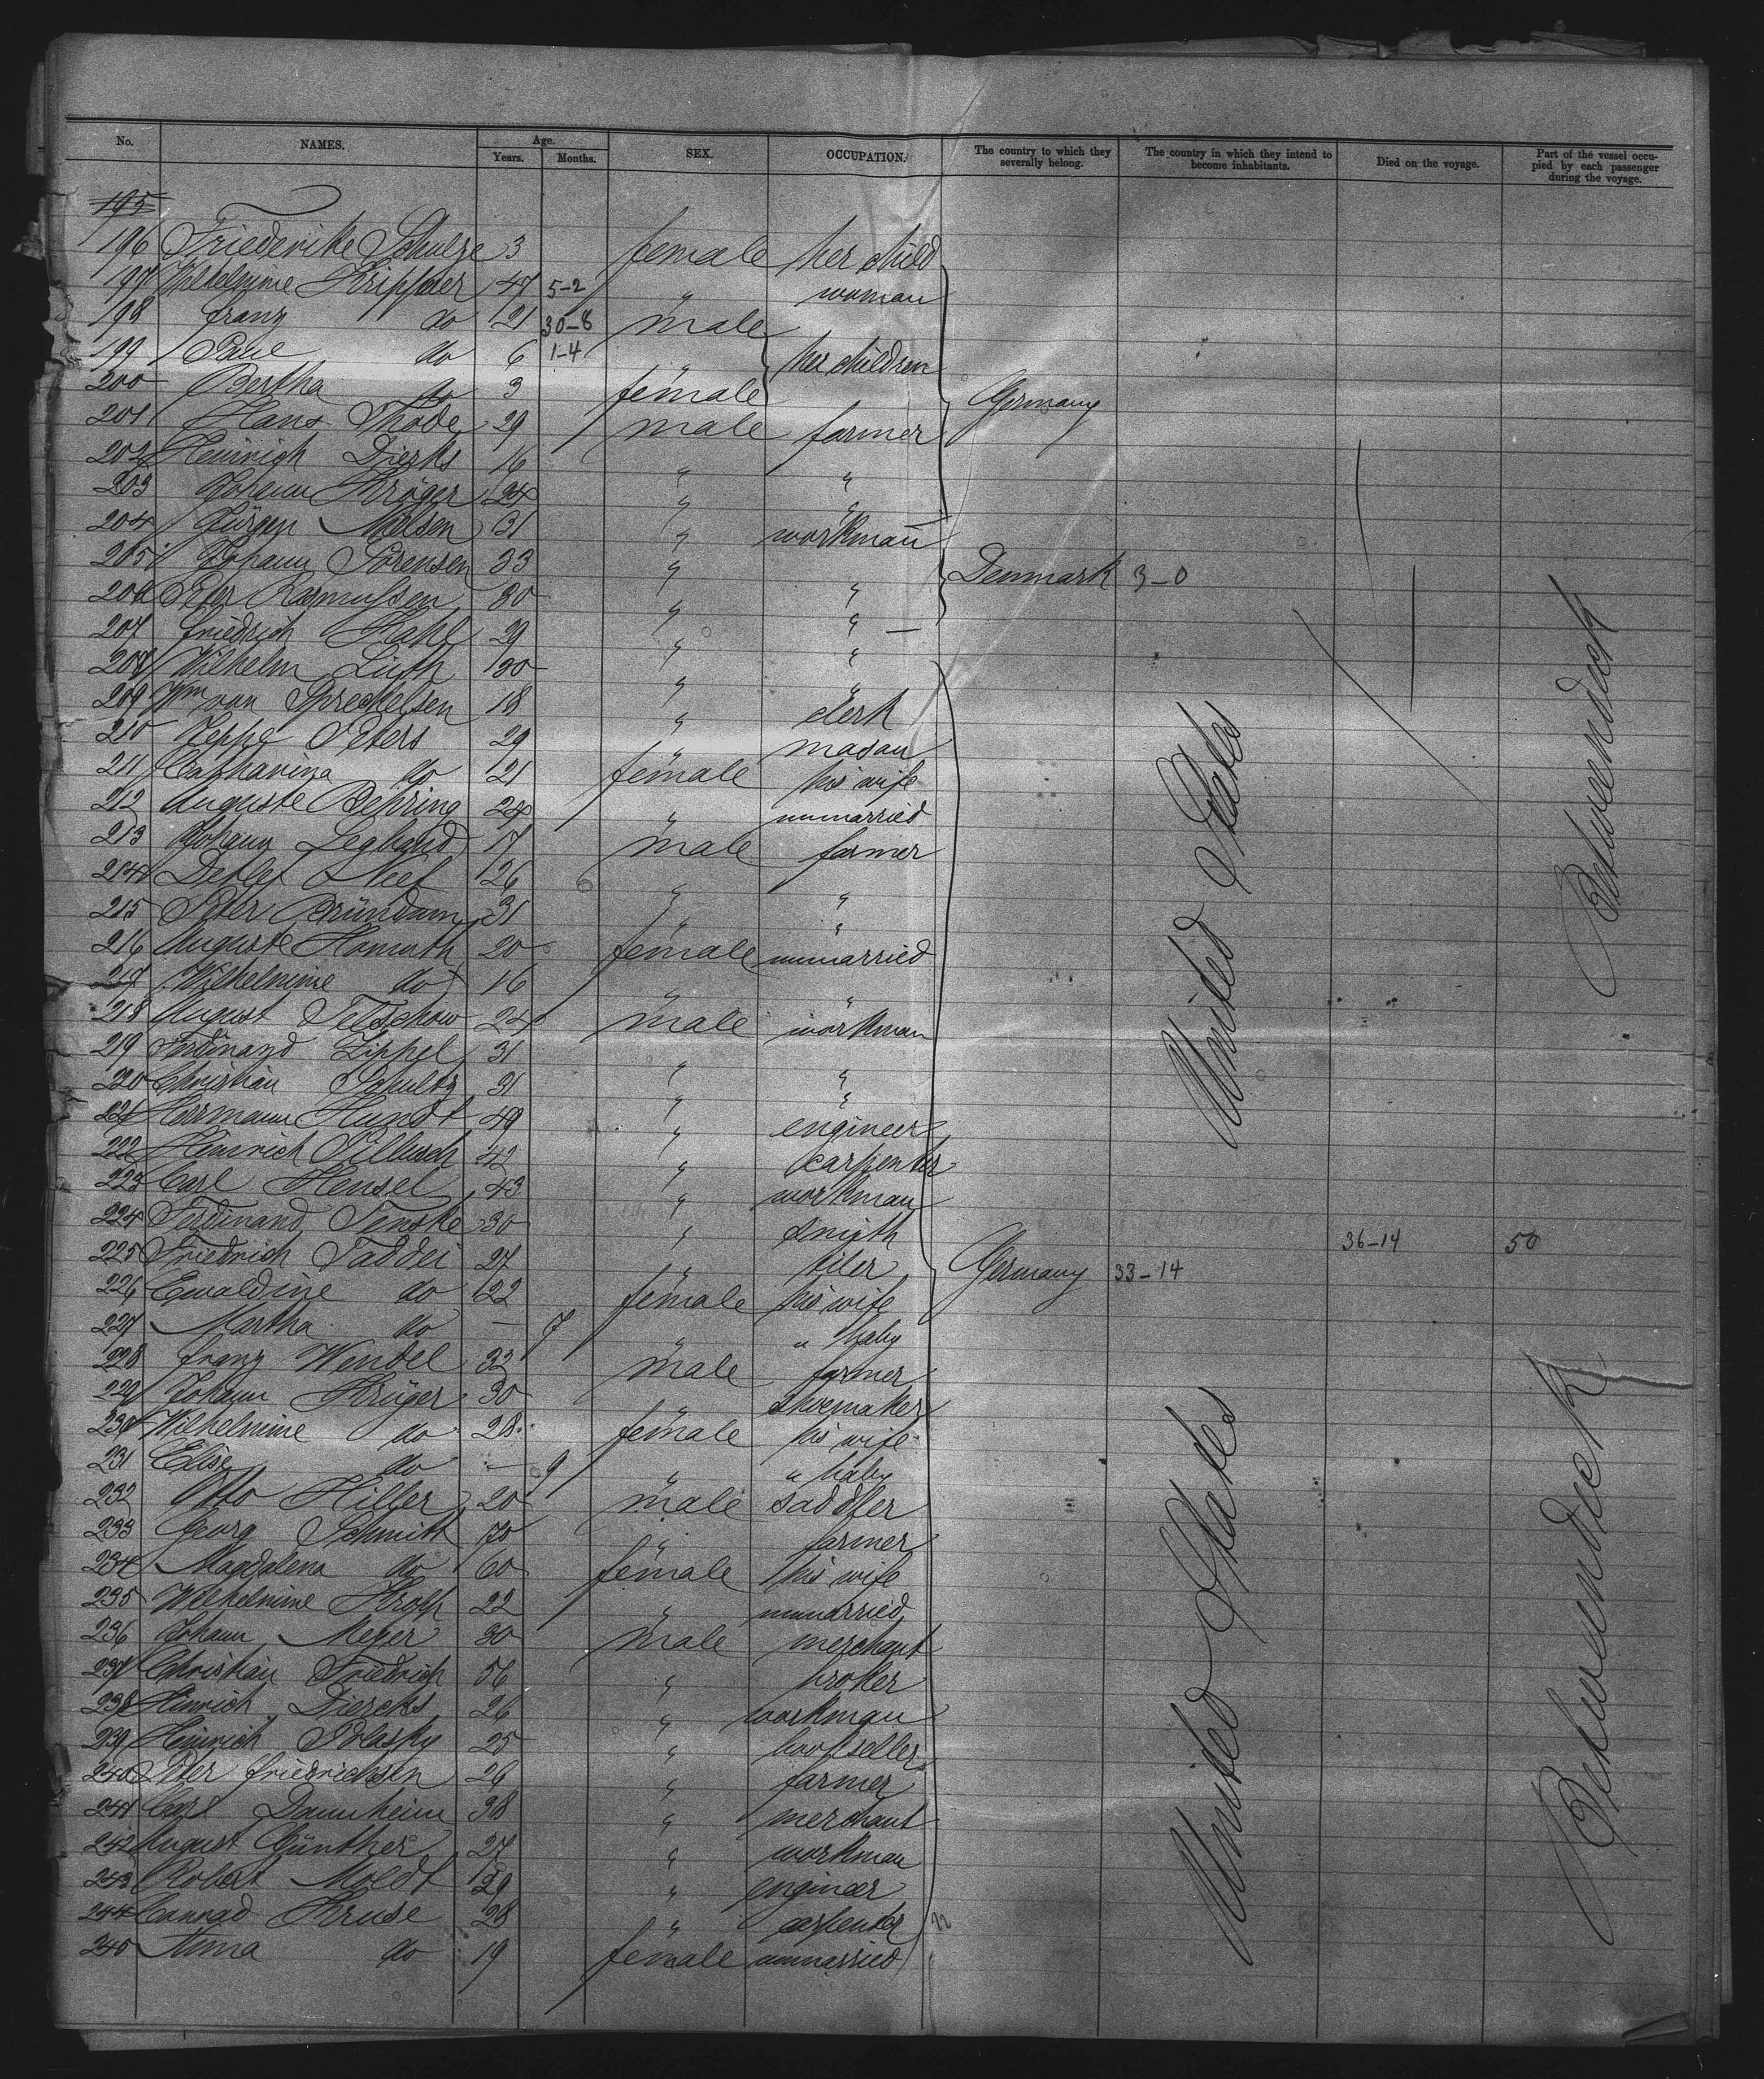 No. NAMES. Age. Years. Months. SEX. OCCUPATION. The country to which they severally belong. The country in which they intend to become inhabitants. Died on the voyage. Part of the vessel occupied by each passenger during the voyage.
195
196 Friederike Schulze 3 female her child
197 Wilhelmine Krippner 47 5-2 " woman
198 Franz do 21 30-8 male
199 Paul do 6 1-4 " her children
200 Bertha do 3 female
201 Hans Thode 29 male farmer Germany
202 Heinrich Dierks 16 " "
203 Johann Kröger 24 " "
204 Jürgen 31 " workman
205 Johann Sörensen 33 " " Denmark 3-0
206 Peter Rasmussen 30 " "
207 Friedrich Kahl 29 " "
208 Wilhelm Lüth 30 " "
209 Wm van Spreckelsen 18 " clerk
210 Jeppe Peters 29 " mason
211 Catharina do 21 female his wife
212 Auguste Behring 24 " unmarried
213 Johann Legband 17 male farmer
214 Detlef 26 " "
215 Peter 31 " "
216 Auguste Homuth 20 female unmarried
217 Wilhelmine do 16 " "
218 August Tetschow 24 male workman
219 Ferdinand Zippel 31 " "
220 Christian Schultz 31 " "
221 Herrmann Hundt 49 " engineer
222 Heinrich 42 " carpenter
223 Carl Hensel 43 " workman
224 Ferdinand Tenske 30 " smith
225 Friedrich Taddei 27 " tiler Germany 33-14 36-14 50
226 Ewaldine do 22 female his wife
227 Martha do — 7 " " baby
228 Franz Wendel 32 male farmer
229 Johann Krüger 30 " shoemaker
230 Wilhelmine do 28 female his wife
231 Elise do — 9 " " baby
232 Otto Hiller 20 male saddler
233 Georg Schmitt 70 " farmer
234 Magdalena do 60 female his wife
235 Wilhelmine Kropp 22 " unmarried
236 Johann Meyer 30 male merchant
237 Christian Friedrich 56 " broker
238 Hinrich Diercks 26 " workman
239 Heinrich 25 " bookseller
240 Peter Friedrichsen 26 " farmer
241 Carl Dannheim 38 " merchant
242 August Günther 27 " workman
243 Robert Moldt 29 " engineer
244 Conrad Kruse 28 " carpenter
245 Anna do 19 female unmarried
United States
United States
Betweendeck
Betweendeck